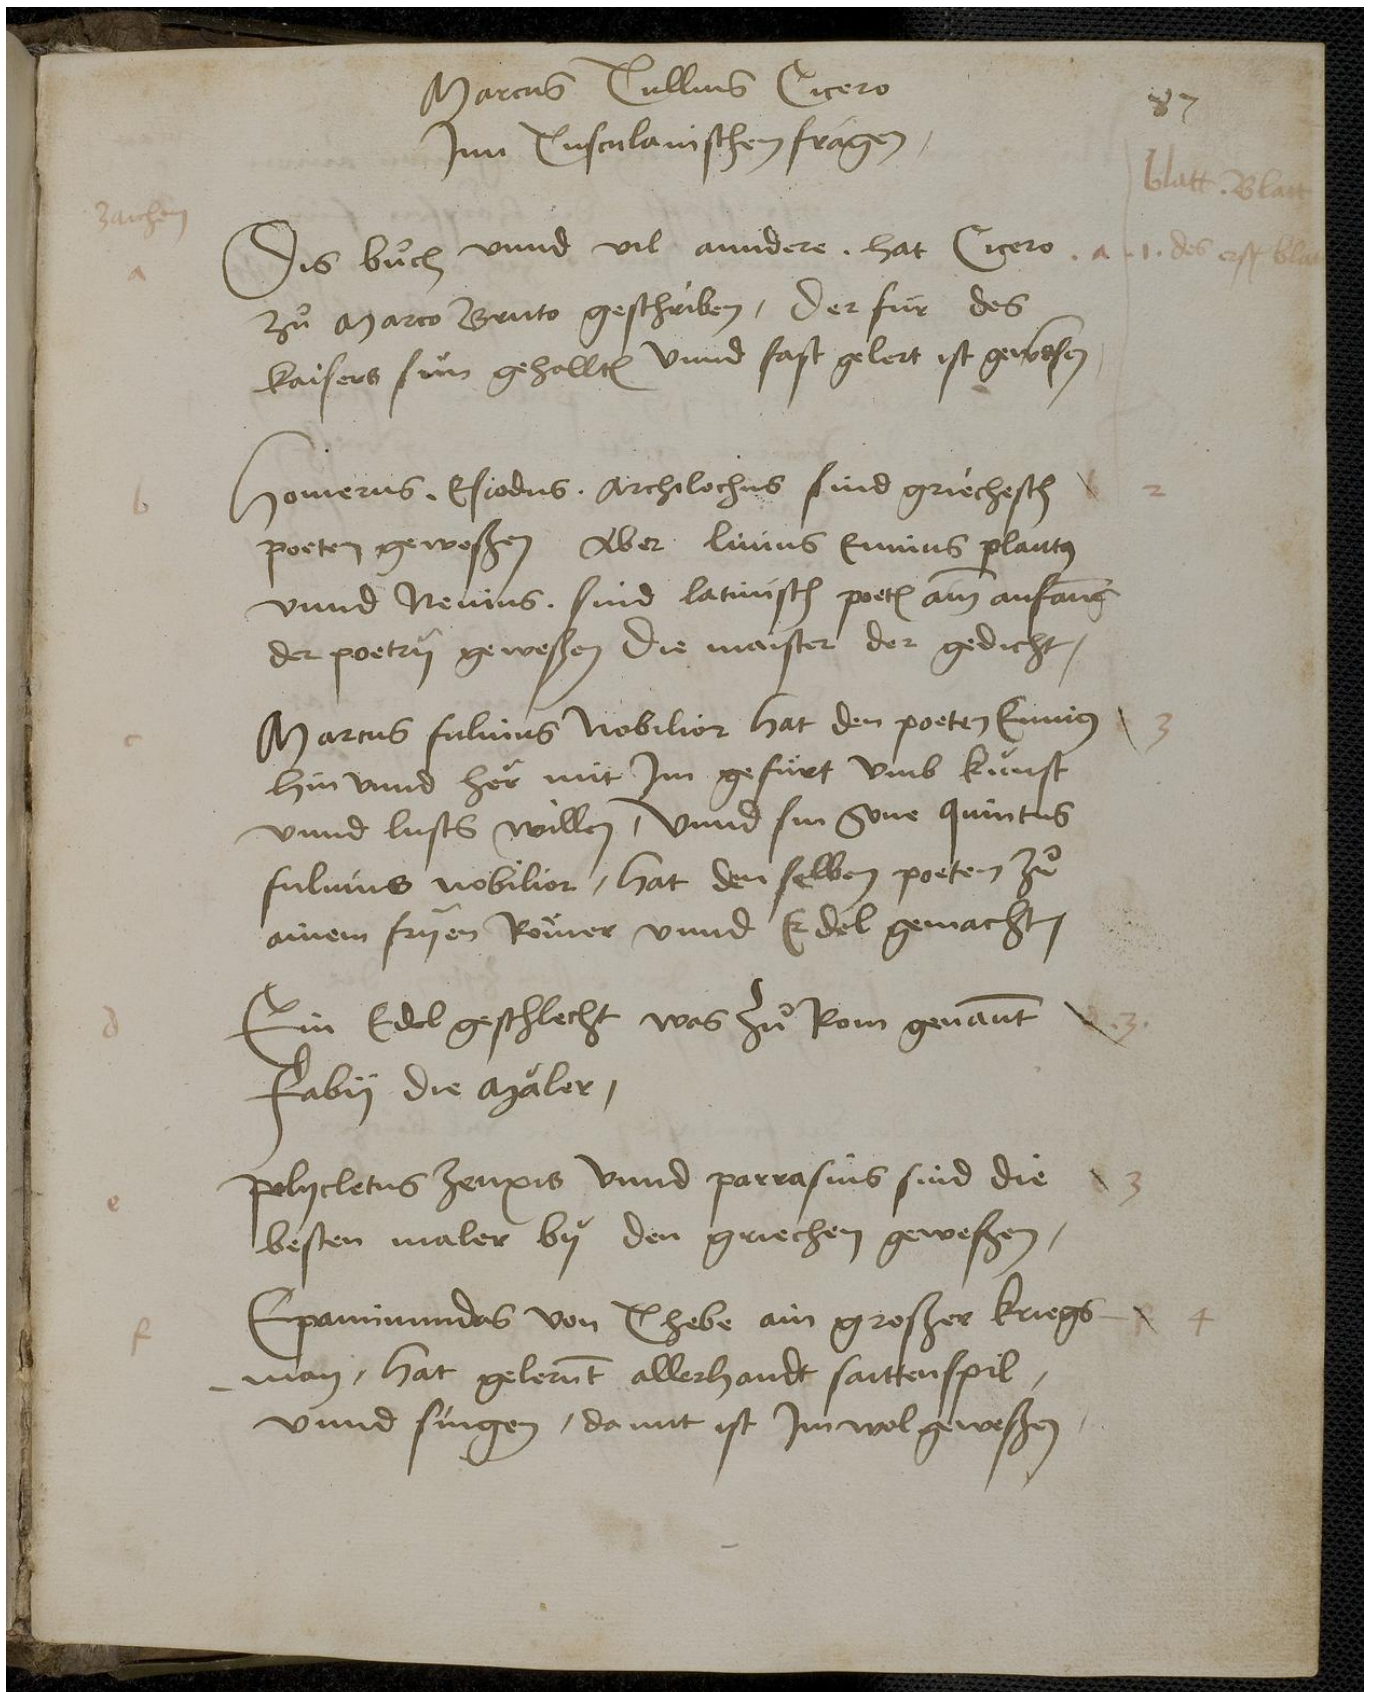 Marcus Tullius Cicero
87
Inn Tusculanischen fragen,
blatt . Blatt
Zaichen
Dis bůch vnnd vil anndere . hat Cicero . a . 1. des erst blat
a
zů Marco Bruto geschriben, Der für des
kaisers sün gehallten Vnnd fast gelert ist gewesen
Homerus . Esiodus . Archilochus sind griechesch b 2
b
poeten geweßen Aber liuius Ennius plautus
vnnd Neuius . sind latinisch poeten am anfang
der poetrÿ geweßen Die maister der gedicht,
Marcus fuluius Nobilior hat den poeten Ennius 3
c
hin vnnd her mit Im gefürt vmb kunst
vnnd lusts willen, Vnnd sin Sone Quintus
fuluius nobilior, hat den selben poeten zů
ainem frÿen Römer vnnd Edel gemacht,
Ein Edel geschlecht was zů Rom genannt d .3.
d
Fabij die Mäler,
polÿcletus Zeuxis Vnnd parrasius sind die 3
e
besten maler bÿ den griechen geweßen,
Epaminundas von Thebe ain großer kriegs f 4
f
man, hat gelernt allerhandt saittenspil,
vnnd singen, damit ist Im wol geweßen